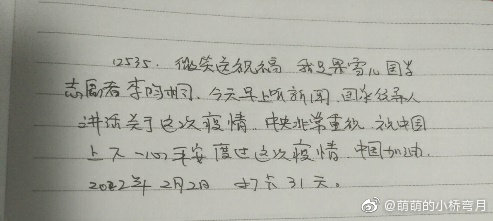 12535. 微笑送祝福 我是果雪儿国学
志愿者李 今天早上听新闻 国家领导人
讲话关于这次疫情 中央非常重视 祝中国
上下一心平安度过这次疫情 中国加油.
2022年2月2日 打卡31天。
@萌萌的小桥弯月